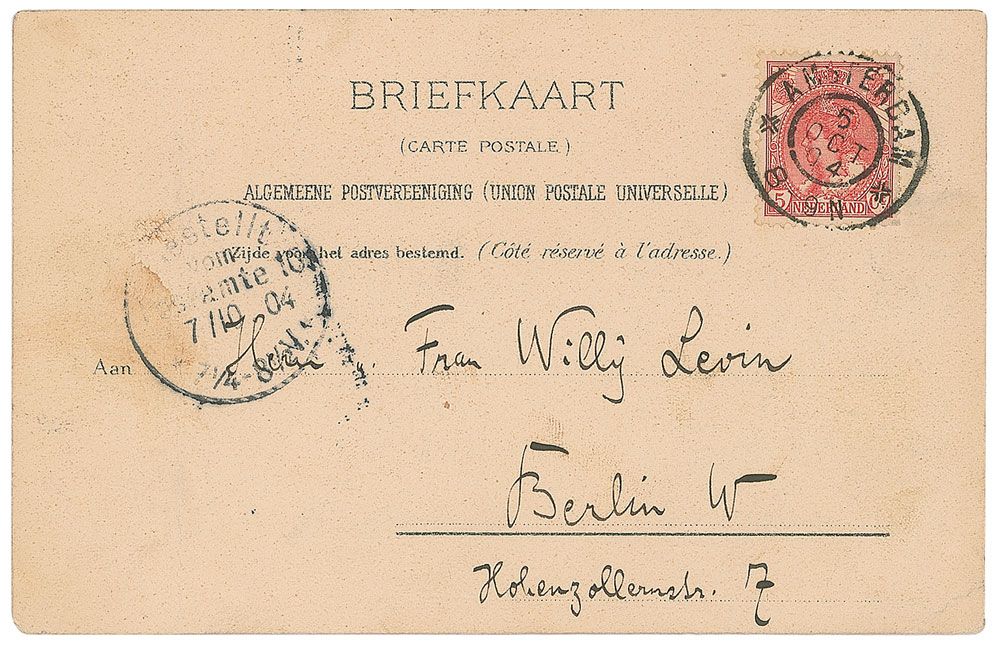 BRIEFKAART
(CARTE POSTALE.)
ALGEMEENE POSTVEREENIGING (UNION POSTALE UNIVERSELLE)
Zijde voor het adres bestemd. (Côté réservé à l'adresse.)
AMSTERDAM
5
OCT
04
5 NEDERLAND Ct
Bestellt
vom
Postamte 10
7/10 04
7 1/4-8 1/2 V.
Aan Herrn u. Frau Willy Levin
Berlin W
Hohenzollernstr. 7